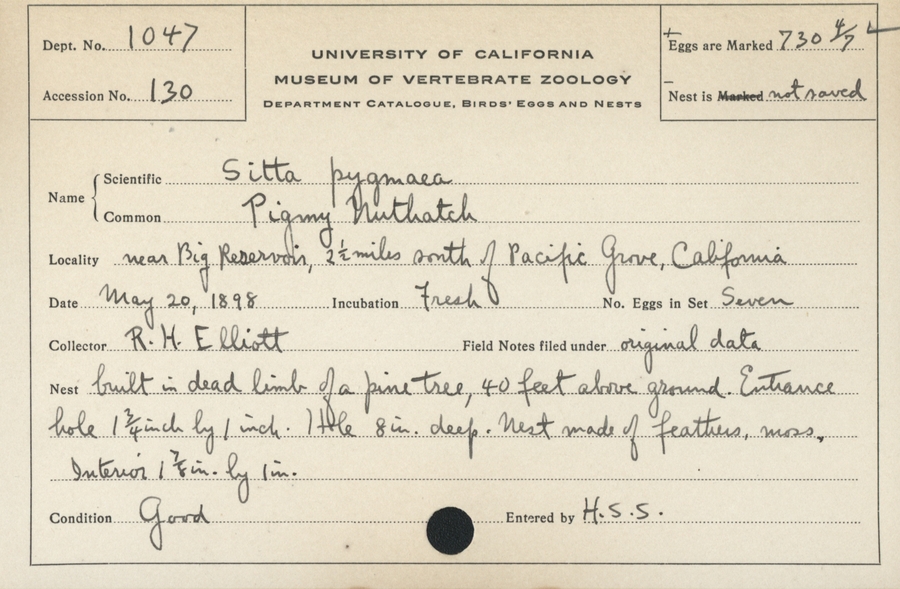 Dept. No. 1047
Accession No. 130
UNIVERSITY OF CALIFORNIA
MUSEUM OF VERTEBRATE ZOOLOGY
DEPARTMENT CATALOGUE, BIRDS' EGGS AND NESTS
Eggs are Marked 730 4/7
Nest is Marked not saved
Name
Scientific Sitta pygmaea
Common Pigmy Nuthatch
Locality near Big Reservoir, 2½ miles south of Pacific Grove, California
Date May 20, 1898 Incubation Fresh No. Eggs in Set Seven
Collector R. H. Elliott Field Notes filed under original data
Nest built in dead limb of a pine tree, 40 feet above ground. Entrance
hole 1¾ inch by 1 inch. Hole 8 in. deep. Nest made of feathers, moss,
Interior 1⅞ in. by 1 in.
Condition Good Entered by H.S.S.